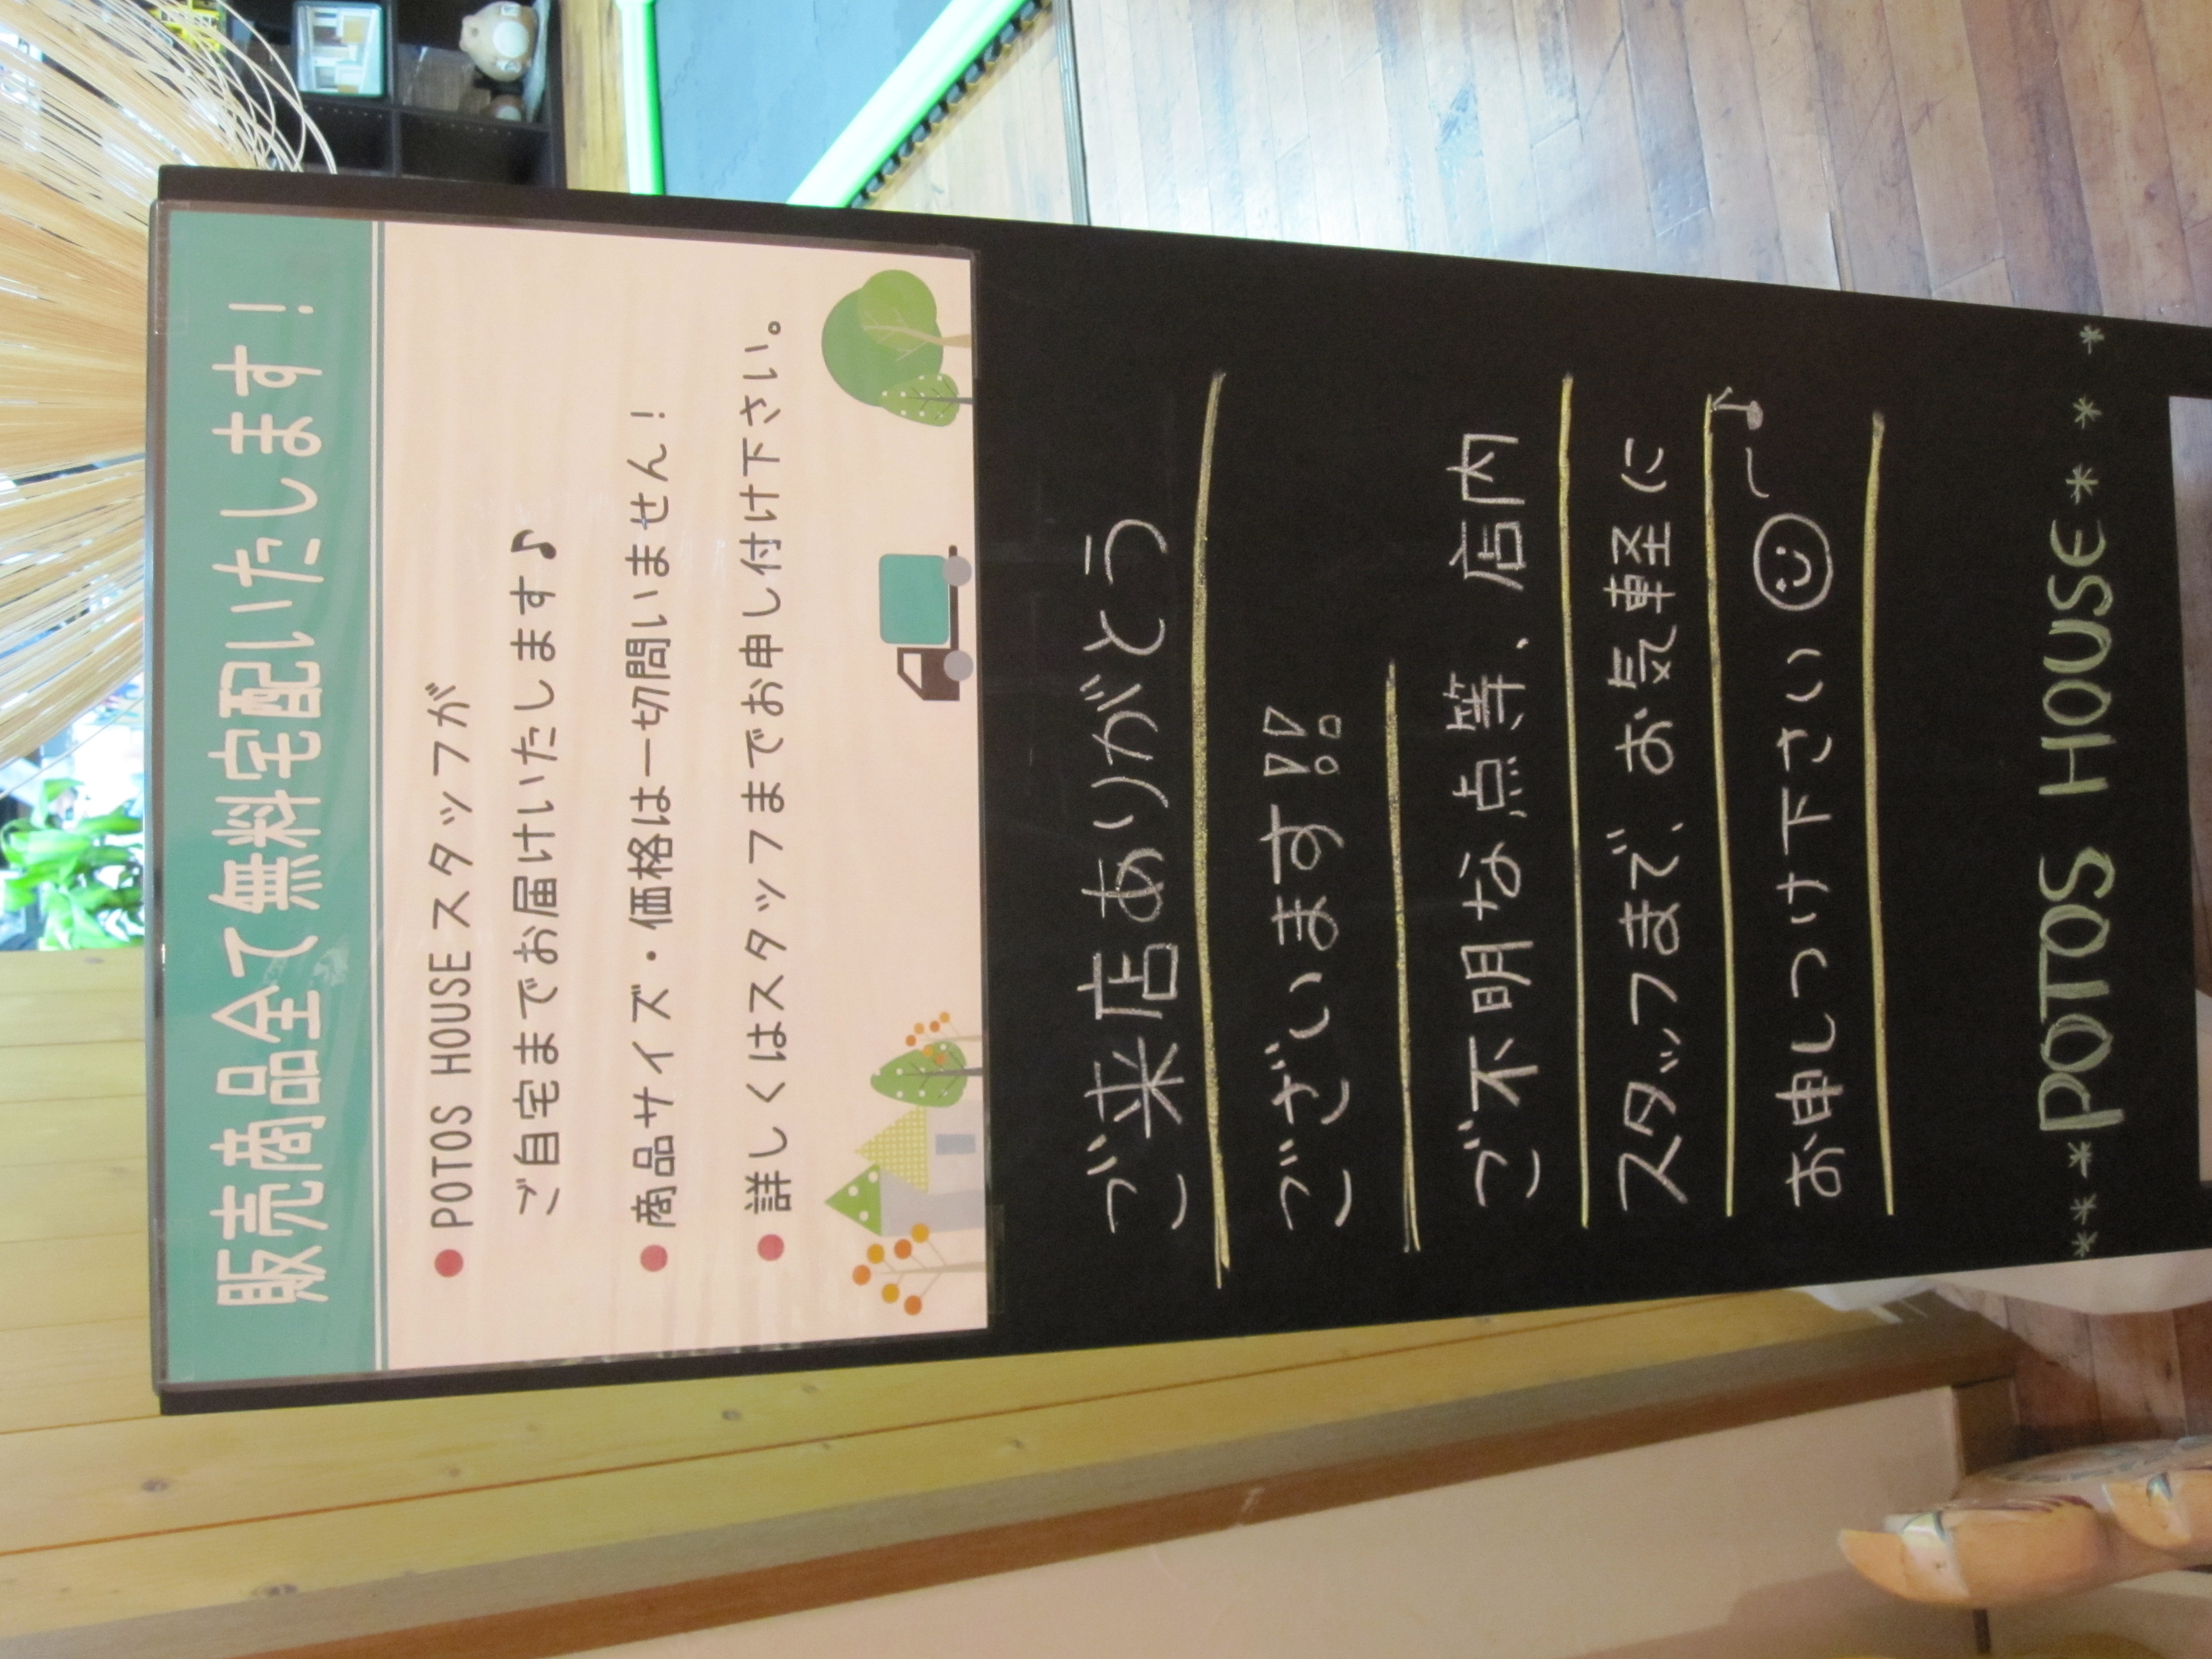 販売商品全て無料宅配いたします！
● POTOS HOUSEスタッフが
ご自宅までお届けいたします♪
● 商品サイズ・価格は一切問いません！
● 詳しくはスタッフまでお申し付け下さい。
ご来店ありがとう
ございます!!
ご不明な点等、店内
スタッフまで、お気軽に
お申しつけ下さい☺～♪
***POTOS HOUSE***